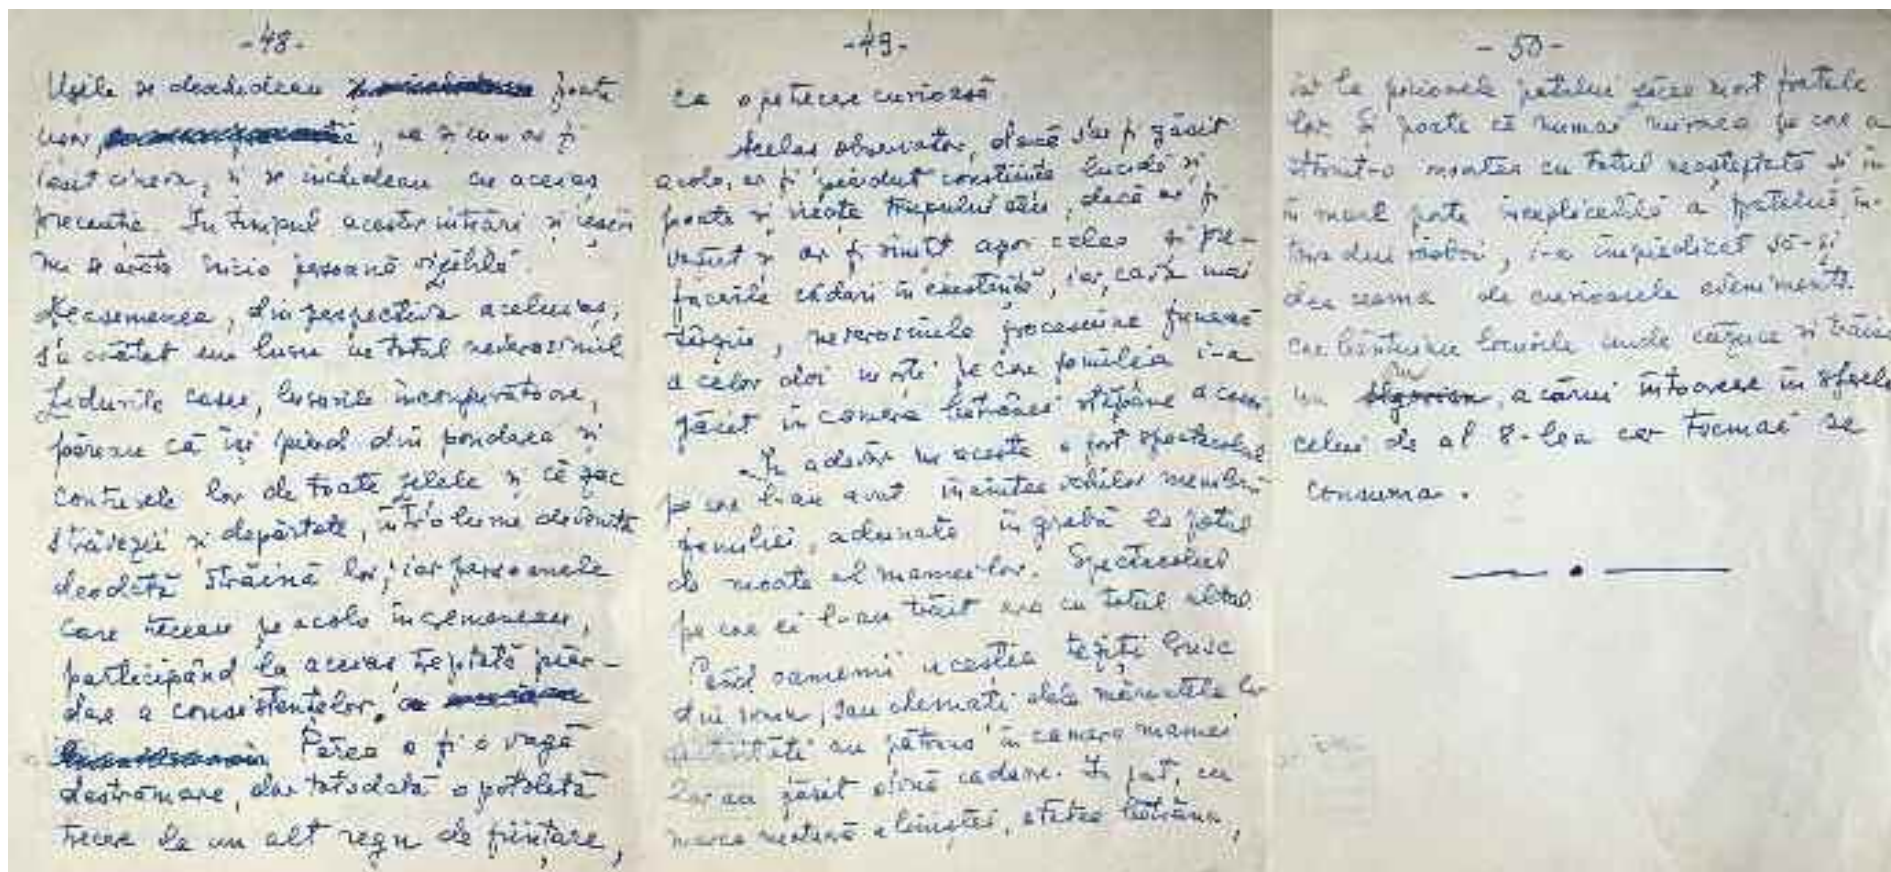 -48-
Ușile se deschideau foarte
ușor, ca și cum ar fi
ieșit cineva, și se închideau cu aceeaș
precauție. In timpul acestor intrări și ieșiri
nu se arăta nicio persoană vizibilă.
Deasemenea, din perspectiva aceluiaș,
s'a arătat un lucru cu totul neverosimil
Zidurile casei, lucrurile înconjurătoare,
păreau că își pierd din pondere și
contursele lor de toate zilele și că zac
străvezii și depărtate, într'o lume devenită
deodată străină lor; iar persoanele
care treceau pe acolo încremeneau,
participând la aceeaș treptată pier-
dere a consistențelor,
Părea a fi o vagă
destrămare, dar totodată o potolită
trecere la un alt regn de ființare,
-49-
ca o petrecere curioasă.
Acelaș observator, dacă s'ar fi găsit
acolo, ar fi pierdut conștiința lucidă și
poate și viața trupului său, dacă ar fi
văzut și ar fi simțit apoi celelalte și pre-
facerile căderi în existență, iar, ceva mai
târziu, neverosimila procesiune funerară
a celor doi morți pe care familia i-a
găsit în camera bătrânei stăpâne a casei
In adevăr nu acesta a fost spectacolul
pe care l-au avut înaintea ochilor membrii
familiei, adunate în grabă la patul
de moarte al mamei lor. Spectacolul
pe care ei l-au trăit era cu totul altul.
Când oamenii aceștia treziți brusc
din somn, sau chemați dela măruntele lor
activități au pătruns în camera mamei
lor au găsit două cadavre. In pat, cu
marea mască a liniștei, stătea bătrâna,
-50-
iar la picioarele patului zăcea mort fratele
lor. Și poate că numai uimirea pe care a
stârnit-o moartea cu totul neașteptată și în
în mare parte inexplicabilă a fratelui în-
tors din război, i-a împiedicat să-și
dea seama de curioasele evenimente
care bântuiau locurile unde căzuse și trăise
un, a cărui întoarcere în sferele
celui de al 8-lea cer tocmai se
consuma.